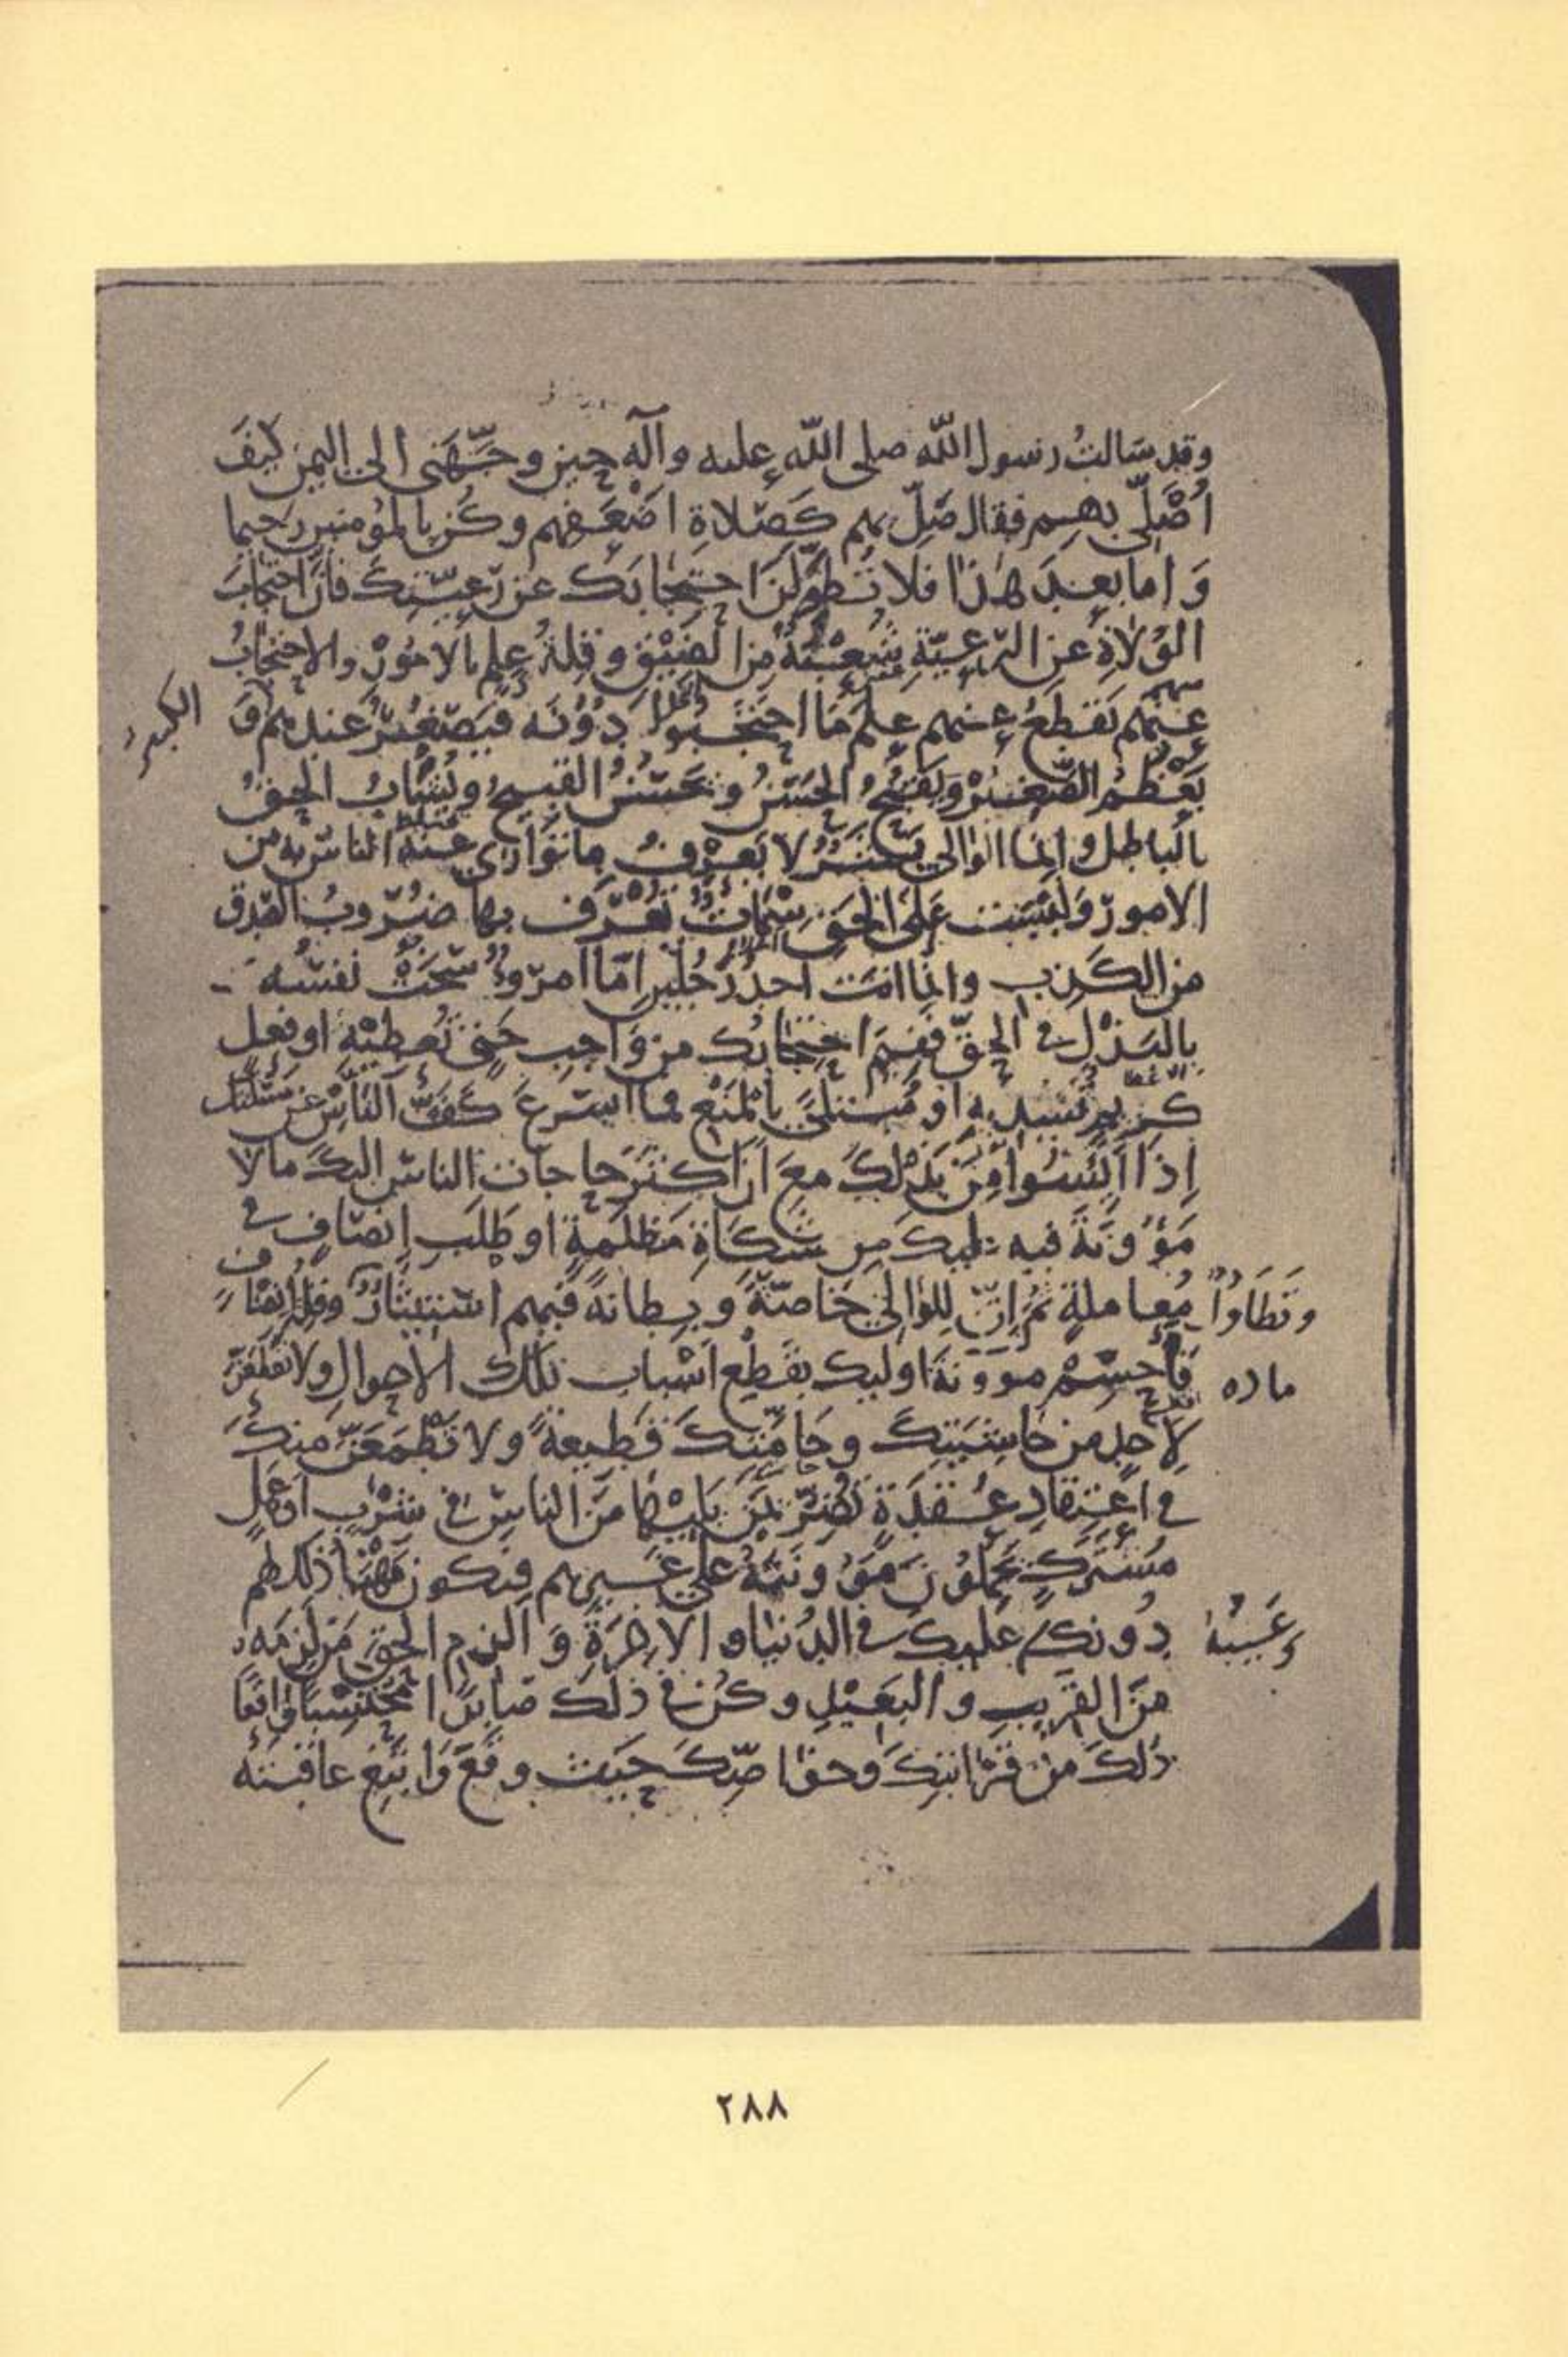 وقد سَالتُ رسول اللّه صلى اللّه عليه وآله حين وجَّهَني الى اليمن كيفَ
اُصَلّي بهم فقال صَلِّ بهم كَصَلاةِ اضْعَفهم وكُن بالمؤمنين رحيما
وَاما بعدَ هٰذا فلا تُطوِّلَنَّ احتجابَك عن رَعيّتِكَ فانَّ احتجابَ
الوُلاةِ عنِ الرّعيّةِ شُعْبَةٌ مِنَ الضيْقِ وقلةُ عِلمٍ بالامُوْرِ والاحتجابُ
عنهم
منهم يَقطَعُ عنهم عِلمَ مَا احتَجَبُوا دُوْنَه فيَصْغُرُ عندهم وَ
الكبيرُ
يَعْظُمُ الصّغيْرُ وَيَقْبُحُ الحَسَنُ ويَحسُنُ القبيحُ ويُشَابُ الحقُّ
بالباطل وانما الوالي بَشَرٌ لا يَعرِفُ ما تَوَارٰى عنهُ الناسُ به من
الامور وَليسَت عَلَى الحَقِّ سِمَاتٌ تُعْرَف بها ضُرُوبُ الصّدق
من الكذب وانما انتَ احدُ رَجُلَيْنِ امّا امرؤٌ سَخَتْ نفسُه
بالبَذْلِ في الحقّ ففيمَ احتجابُك من وَاجبِ حَقٍّ تُعطيْهِ او فعلٍ
كريمٍ تُسْديه او مُبْتَلىً بالمَنْعِ فما اسرعَ كَفَّ النّاسِ عن مسْئلتك
إذا اَيِسُوا مِنْ بَذْلِكَ معَ انَّ اكثرَ حاجات الناس اليكَ ما لا
مَؤُوْنَةَ فيه عليك من شَكَاةِ مَظلَمةٍ او طَلَبِ اِنصَافٍ في
معاملةٍ ثمّ اِنّ لِلوالي خاصّةً وبِطانةً فيهم استيثارٌ وقلّةُ اِنصَافٍ
وتَطَاوُلٌ
فاَحسِمْ موونةَ اوليك بقَطْعِ اَسْبابِ تلك الاحوالِ ولا تُقطِعَنَّ
ماده
لاَحدٍ من حَاشِيَتِكَ وحَامَّتِكَ قَطِيعةً ولا يَطْمَعَنَّ منكَ
في اعتِقادِ عُقدَةٍ تضُرُّ بمَنْ يَليْها مِنَ الناسِ في شِرْبٍ اَو عَمَلٍ
مُشتَرَكٍ يَحمِلُونَ مَؤُونَتَهُ على غيرِهم فيكونَ مَهْنَأُ ذلكَ لهم
دُونَكَ وعَيبُهُ عليكَ في الدُنيا والاخرَةِ وَالزمِ الحقَّ مَن لَزِمَهُ
مِنَ القريبِ والبَعيْدِ وكُن في ذلك صَابِرًا مُحتسِبًا واقعًا
ذلكَ مِن قَرابَتِكَ وخاصّتِكَ حَيثُ وقَعَ وَابتَغِ عاقبتَه
٢٨٨